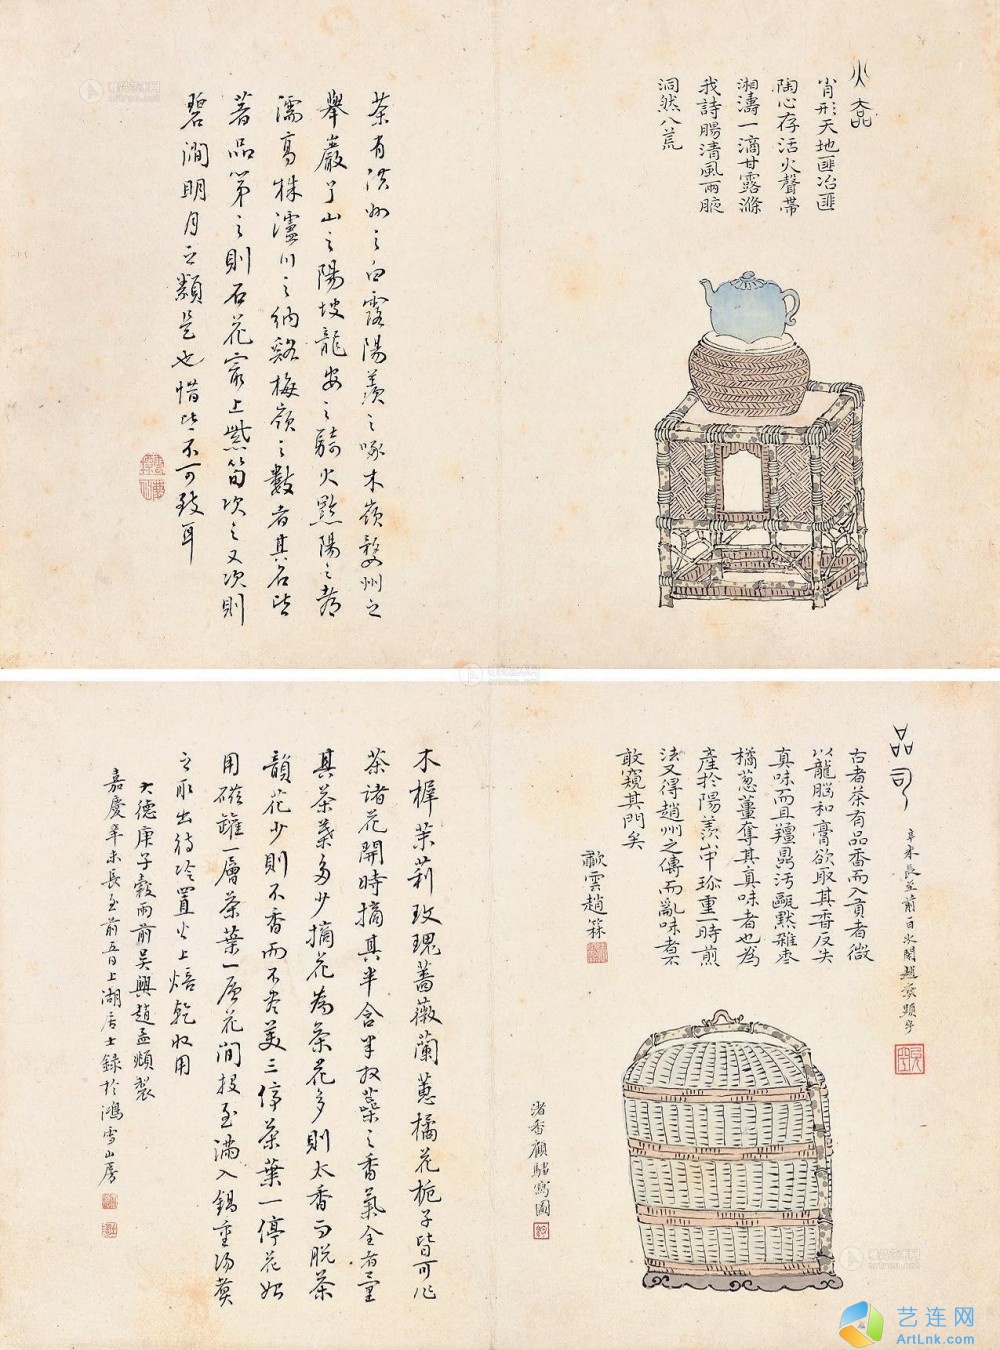 肖形天地匪冶匪
陶心存活火聲帶
湘濤一滴甘露滌
我詩腸清風兩腋
洞然八荒
茶有洪州之白露陽羨之啄木嶺婺州之
舉巖了山之陽坡龍安之騎火黔陽之都
濡高株瀘川之納谿梅嶺之數者其名皆
著品第之則石花最上紫筍次之又次則
碧澗明月之類是也惜皆不可致耳
品司
辛未長至前一日
古者茶有品香而入貢者微
以龍腦和膏欲取其香反失
真味而且羶鼎污甌點雜棗
橘蔥薑奪其真味者也為
產於陽羨山中珍重一時煎
法又得趙州之傳而亂味者不
敢窺其門矣
歗雲趙
渚香顧 寫圖
木樨茉莉玫瑰薔薇蘭蕙橘花梔子皆可作
茶諸花開時摘其半含半放蕊之香氣全者量
其茶葉多少摘花為茶花多則太香而脫茶
韻花少則不香而不盡美三停茶葉一停花始
用磁罐一層茶葉一層花間投至滿入鍋重湯煮
之取出待冷置火上焙乾收用
大德庚子穀雨前吳興趙孟頫製
嘉慶辛未長至前五日上湖居士錄於鴻雪山房
艺连网
ArtLnk.com